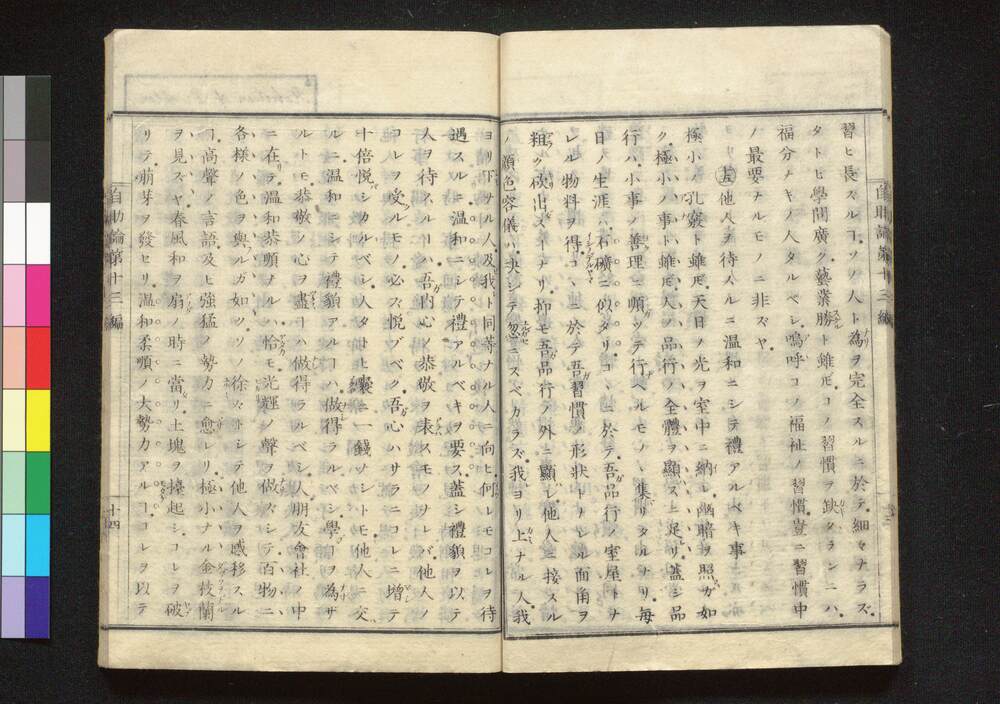 習ヒ長スルヿ、ソノ人ト為ヲ完全スルニ於テ、細セナラズ、
タトヒ學問廣ク藝業勝ルト雖𪜈、コノ習慣ヲ缺タランニハ、
福分ナキノ人タルベシ、嗚呼コノ福祉ノ習慣豈ニ習慣中
ノ最要ナルモノニ非ズヤ
他人ヲ待スルニ温和ニシテ禮アルベキ事
極小ノ孔竅ト雖𪜈、天日ノ光ヲ室中ニ納レ、幽暗ヲ照スガ如
ク、極小ノ事ト雖𪜈、人ノ品行ノ全體ヲ顯スニ足リ、蓋シ品
行ハ、小事ノ善理ニ順ツテ行ヘルモノヽ集リタルナリ、毎
日ノ生涯ハ、石礦ニ似タリ、コヽニ於テ吾品行ノ室屋トナ
レル物料ヲ得、コヽニ於テ吾習慣ノ形状トナレル面甬ヲ
粗ク砍出スナリ、抑モ吾品行ノ外ニ顯レ、他人ニ接スル
顔色容儀ハ、決シテ忽ニスベカラズ、我ヨリ上ナル人、我
ヨリ下ナル人、及我ト同等ナル人ニ向ヒ、何レモコレヲ待
遇スルニ温和ニシテ禮アルベキヲ要ス、蓋シ禮貌ヲ以テ
人ヲ待スルハ、吾内心ノ恭敬ヲ表スモノナレバ、他人ノ
コレヲ受ルモノ、必ズ悦ブベク、吾心ハサラニコレニ増テ
十倍悦シカルベシ、人タトヒ嚢ニ一錢ナシトモ、他人ニ交
ルニ温和ニシテ禮貌アルヿハ做得ラルベシ、學問ヲ為サ
ルトモ、恭敬ノ心ヲ盡スヿハ做得ラルベシ、人朋友會社ノ中
ニ在テ、温和恭順ナルハ、恰モ光輝ノ聲ヲ做ズシテ、百物ニ
各様ノ色ヲ與フルガ如ク、徐々トシテ他人ヲ感移スル
ヿ、高聲ノ言語及ヒ強猛ノ勢力ニ愈レリ、極小ナル金枝蘭
ヲ見ズヤ、春風和ヲ扇ノ時ニ當リ、土塊ヲ擡起シ、コレヲ破
リテ、萌芽ヲ發セリ、温和柔順ノ大勢力アルヿ、コレヲ以テ
自助論第十三編
十四
自助論第十三編